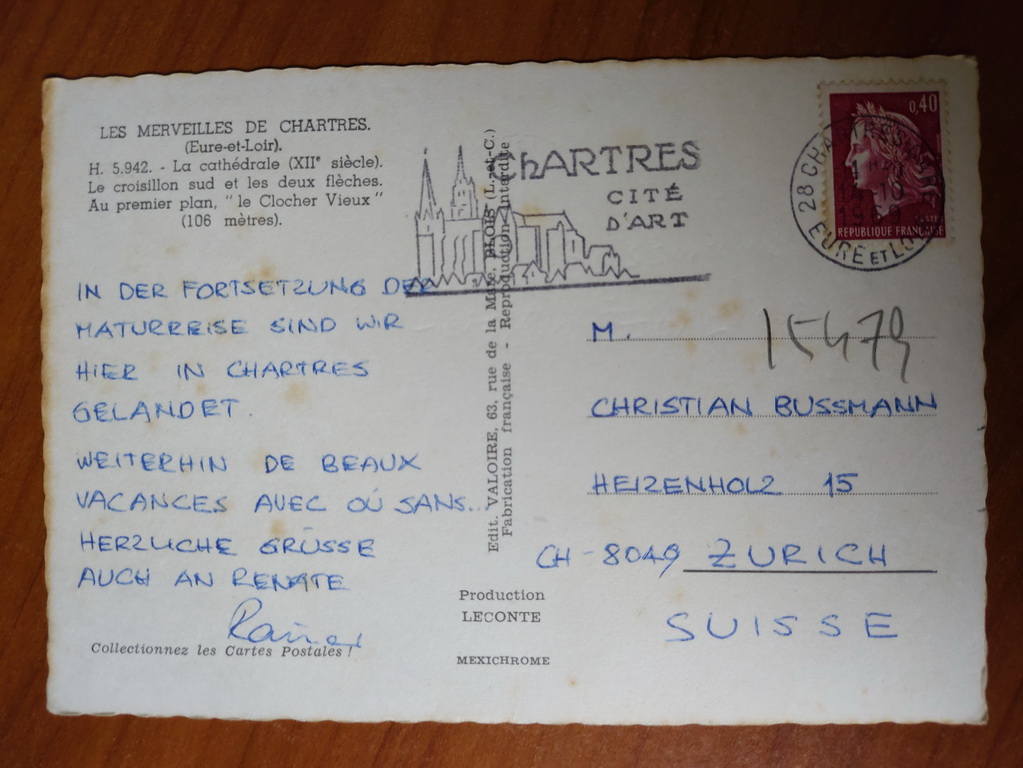 LES MERVEILLES DE CHARTRES.
(Eure-et-Loir).
H. 5.942. - La cathédrale (XIIᵉ siècle).
Le croisillon sud et les deux flèches.
Au premier plan, " le Clocher Vieux "
(106 mètres).
ChARTRES
CITÉ
D'ART
0,40
REPUBLIQUE FRANÇAISE
28 CHARTRES
EURE ET LOIR
IN DER FORTSETZUNG DER
MATURREISE SIND WIR
HIER IN CHARTRES
GELANDET.
WEITERHIN DE BEAUX
VACANCES AVEC OÙ SANS...
HERZLICHE GRÜSSE
AUCH AN RENATE
Rainer
Collectionnez les Cartes Postales !
Edit. VALOIRE, 63, rue de la Maïe, BLOIS (L.-et-C.)
Fabrication française - Reproduction interdite
Production
LECONTE
MEXICHROME
15479
M.
CHRISTIAN BUSSMANN
HEIZENHOLZ 15
CH-8049 ZURICH
SUISSE